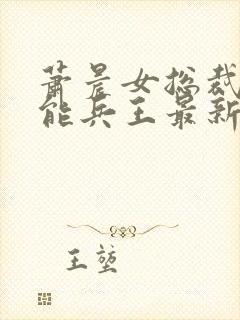 萧晨女总裁
能兵王最新
王堃